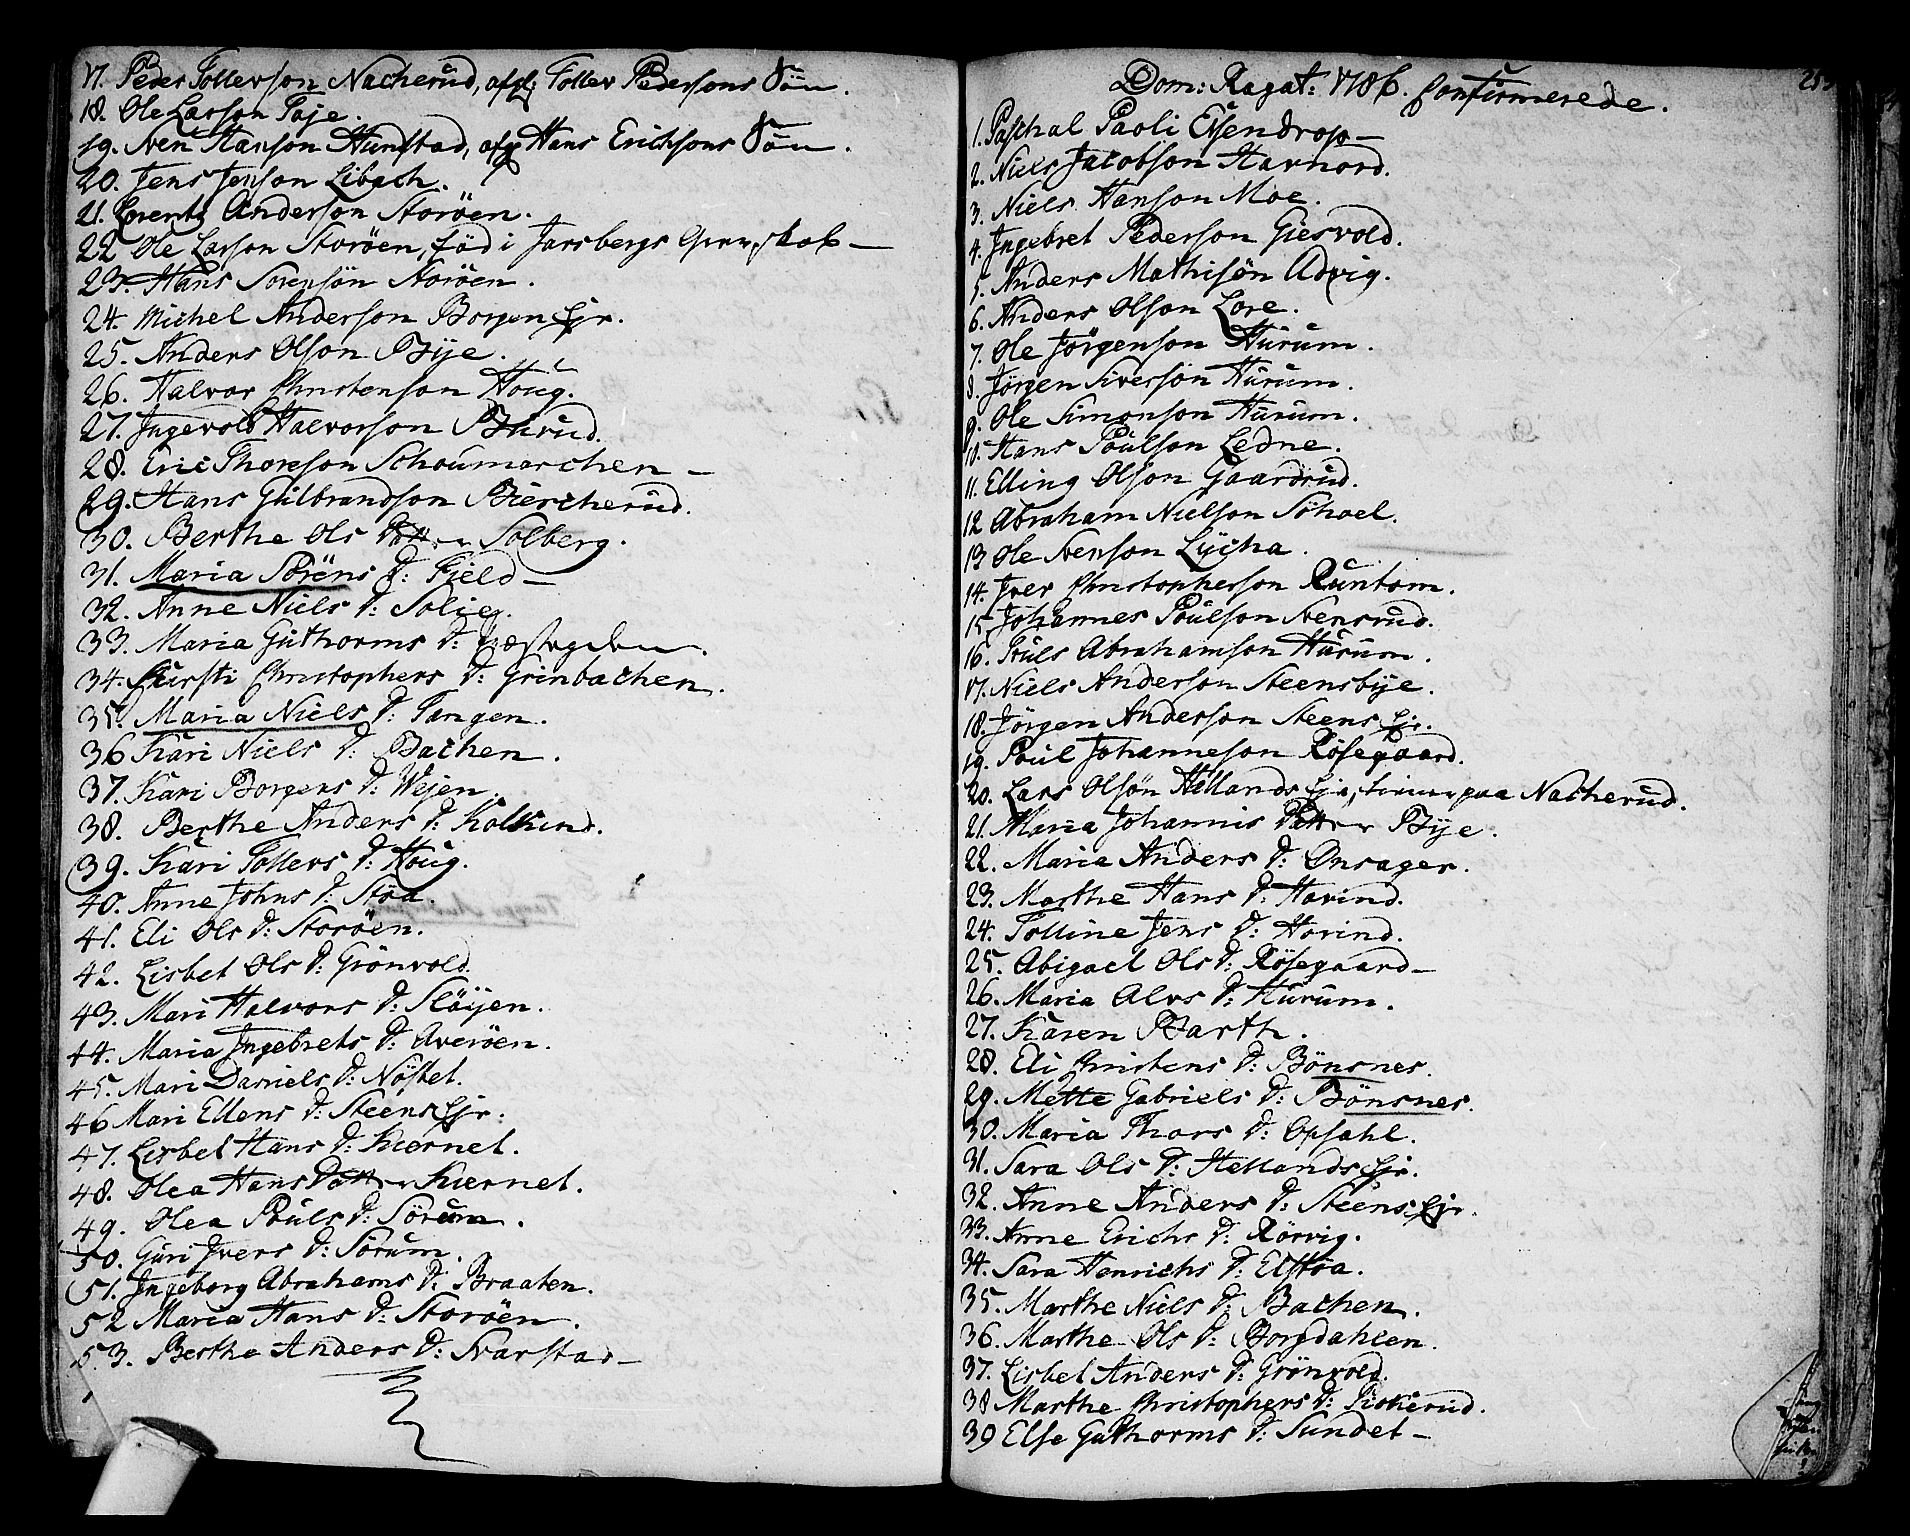 17. Peder Tollevson Nacherud, afg: Tollev Pedersons Søn.
18. Ole Larson Faje.
19. Sven Hanson Hunstad, afg Hans Erichsons Søn.
20. Jens Jenson Libach.
21. Lorentz Anderson Storöen.
22 Ole Larson Storöen, föd i Jarsbergs Grevskab —
23. Hans Sorensön Storöen.
24. Michel Anderson Borgen Ejr.
25. Anders Olson Bye.
26. Halvor Christenson Houg.
27. Ingevold Halvorson Burud.
28. Eric Thoreson Schoumarchen —
29. Hans Gulbrandson Biercherud.
30. Berthe Ols Datter Solberg.
31. Maria Sörens D: Field —
32. Anne Niels D: Solieg.
33. Maria Guthorms D:
34. Kirsti Christophers D: Grinbachen.
35. Maria Niels D: Tangen.
36 Kari Niels D: Bachen.
37. Kari Borgers D: Wejen.
38. Berthe Anders D: Kolkind.
39. Kari Tollevs D: Houg.
40. Anne Johns D: Stöa.
41. Eli Ols D: Storöen.
42. Lisbet Ols D: Grönvold.
43. Mari Halvors D: Slöijen.
44. Maria Ingebrets D: Averöen.
45. Mari Daniels D: Nöstet.
46 Mari Ellens D: Steens Ejr:
47. Lisbet Hans D: Kiernet.
48. Olea Hans Datter Kiernet.
49. Olea Pouls D: Sörum.
50. Guri Ivers D: Sörum.
51. Ingeborg Abrahams D: Braaten.
52 Maria Hans D: Storöen.
53. Berthe Anders D: Svarstad —
Dom: Rogat: 1786. Confirmerede.
1. Paschal Paoli Eisendrop —
2. Niels Jacobson Havnord.
3. Niels Hanson Moe.
4. Ingebret Pederson Giesvold.
5. Anders Mathisön Advig.
6. Anders Olson Lore.
7. Ole Jörgenson Hurum.
8. Jörgen Siversön Hurum.
9. Ole Simonson Hurum.
10. Hans Poulson Ledne.
11. Elling Olson Gaardrud.
12 Abraham Nielson Schoel.
13 Ole Svenson Lycha.
14. Iver Christopherson Runtom.
15. Johannes Poulson Svensrud.
16. Pouls Abrahamson Hurum.
17. Niels Anderson Steensbye.
18. Jörgen Anderson Steens Ejr.
19. Poul Johanneson Rösegaard.
20. Lars Olsön Hellands Ejr, tiener paa Nacherud.
21. Maria Johannis Datter Bye.
22. Maria Anders D: Onsager.
23. Marthe Hans D: Hovind.
24. Folline Jens D: Hovind.
25. Abigael Ols D: Rösegaard —
26. Maria Alvs D: Hurum.
27. Karen Barth.
28. Eli Christens D: Bönsnes.
29. Mette Gabriels D: Bönsnes.
30. Maria Thors D: Opsahl.
31. Sara Ols D: Hellands Ejr.
32. Anne Anders D: Steens Ejr.
33. Anne Erichs D: Rörvig.
34. Sara Henrichs D: Elstöa.
35. Marthe Niels D: Bachen.
36. Marthe Ols D: Borgdahlen.
37. Lisbet Anders D: Grönvold.
38 Marthe Christophers D: Piskerud.
39 Else Guthorms D: Sundet —